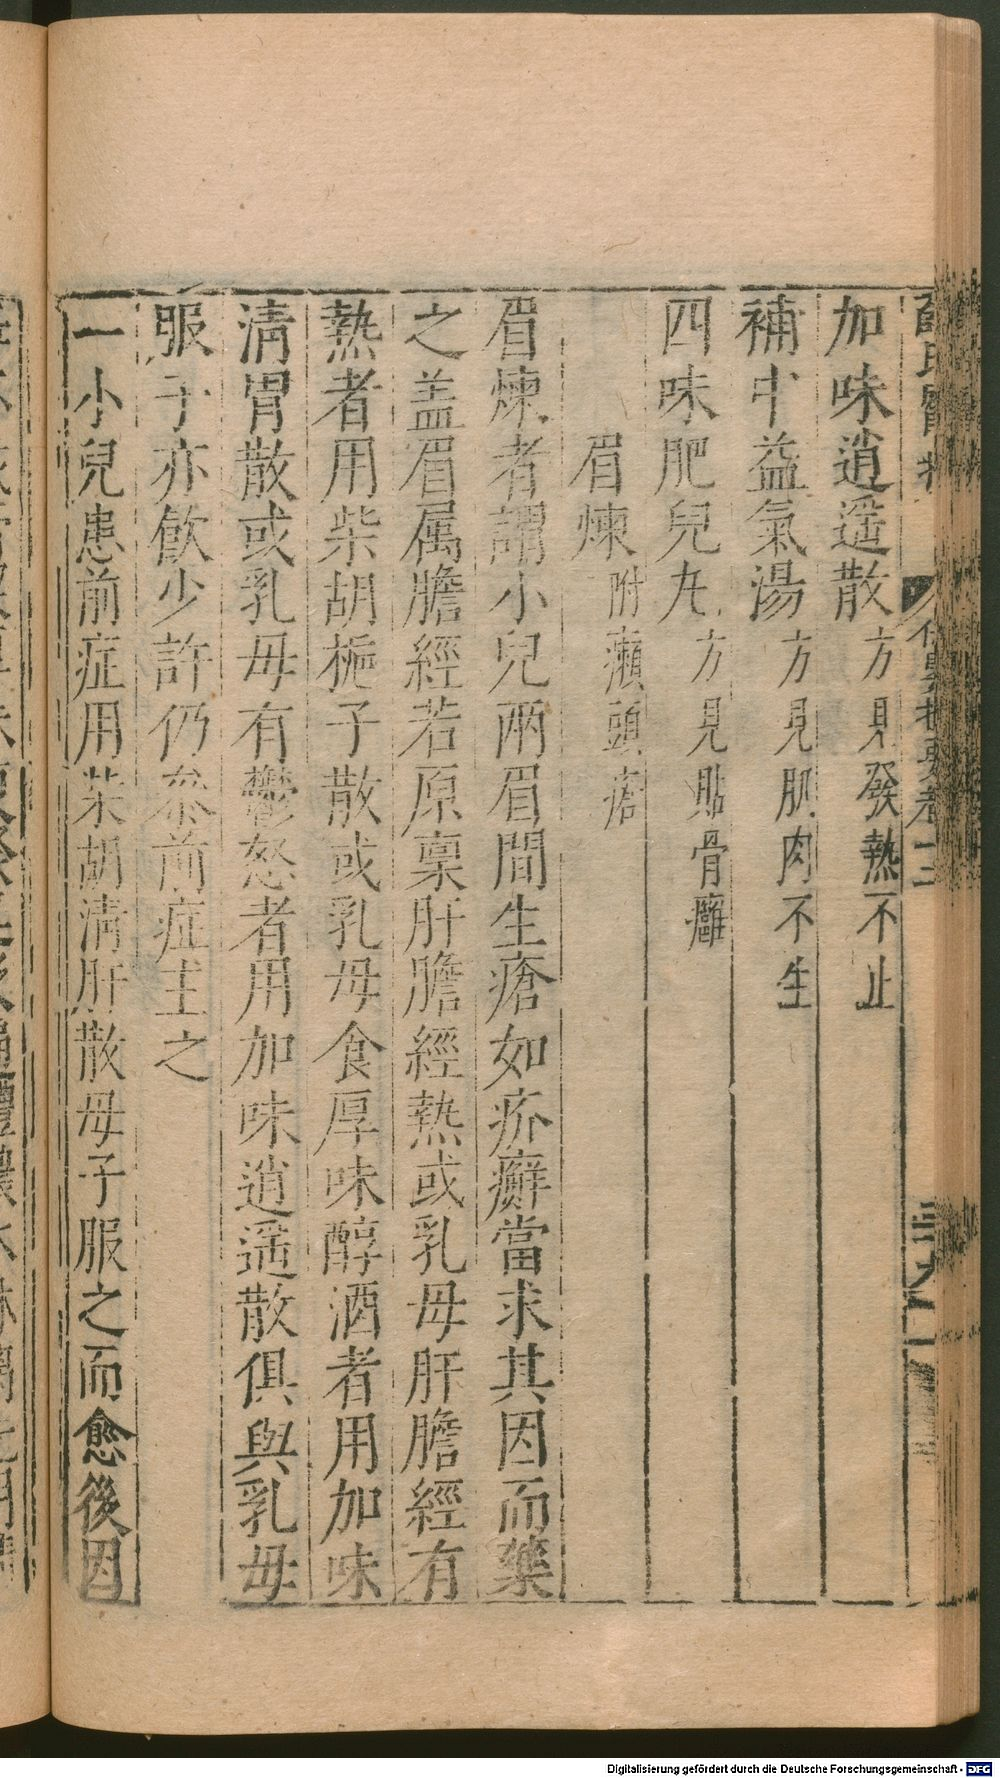 加味逍遥散方見發熱不止
補中益氣湯方見肌肉不生
四味肥兒丸方見貼骨癰
眉煉附瀨頭瘡
眉煉者謂小兒兩眉間生瘡如疥癬當求其因而藥
之盖眉属膽經若原稟肝膽經熱或乳母肝膽經有
熱者用柴胡梔子散或乳母食厚味醇酒者用加味
清胃散或乳母有鬱怒者用加味逍遥散俱與乳母
服子亦飲少許仍叅前症主之
一小兒患前症用柴胡清肝散母子服之而愈後因
Digitalisierung gefördert durch die Deutsche Forschungsgemeinschaft - DFG